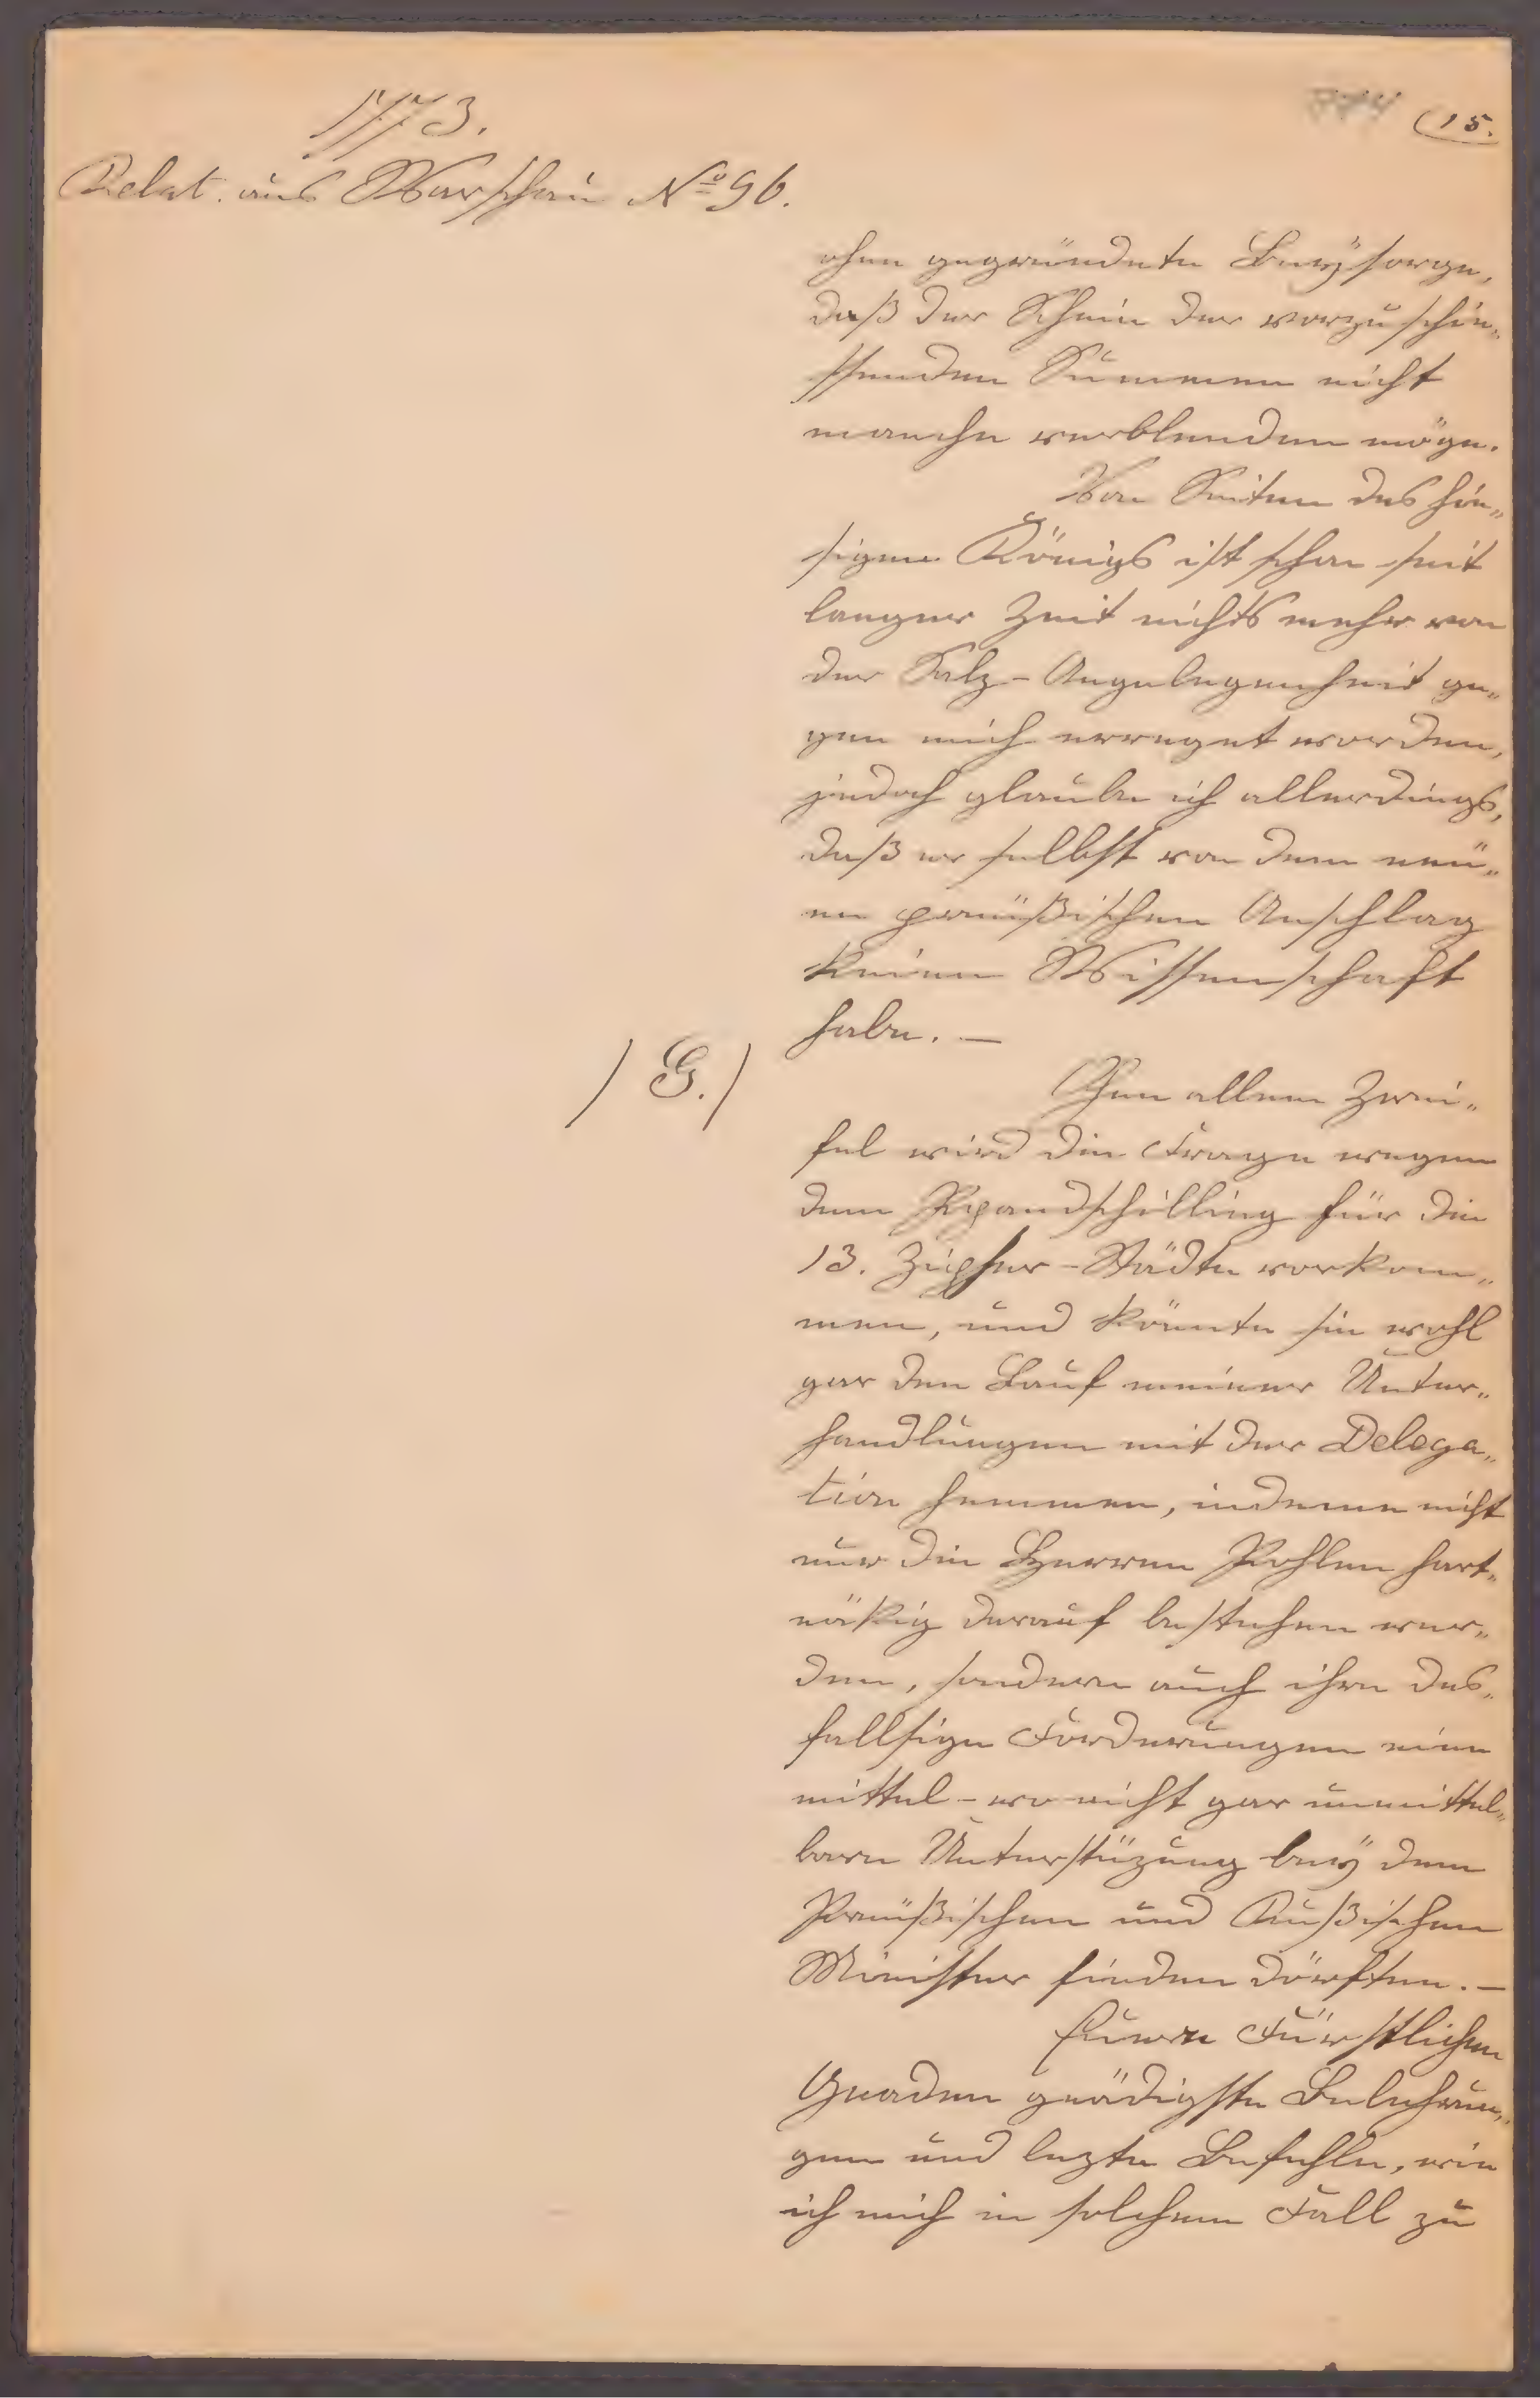 1773.
(15.
Relat. aus Warschau No 96.
ohne gegründete Beÿsorge,
daß der Schein der vorzuschie„
ssenden Summen nicht
manche verblenden möge.
Von Seiten des hie„
sigen Königs ist schon seit
langer Zeit nichts mehr von
der Salz-Angelegenheit ge„
gen mich erreget worden,
jedoch glaube ich allerdings,
daß er selbst von dem neü„
en preüßischen Anschlag
keine Wissenschaft
habe. —
/ G. /
Ohne allem Zwei„
fel wird die Frage wegen
dem Pfandschilling für die
13. Zipser-Städte vorkom„
men, und könnte sie wohl
gar den Lauf meiner Unter„
handlungen mit der Delega„
tion hemmen, indeme nicht
nur die Herren Pohlen hart„
näkig darauf bestehen wer„
den, sondern auch ihre des„
fallsige Forderungen eine
mittel- wo nicht gar unmittel„
bare Unterstüzung beÿ dem
Preüßischen und Rußischen
Minister finden dörften. —
Euere Fürstlichen
Gnaden gnädigste Belehrun„
gen und lezte Befehle, wie
ich mich in solchem Fall zu